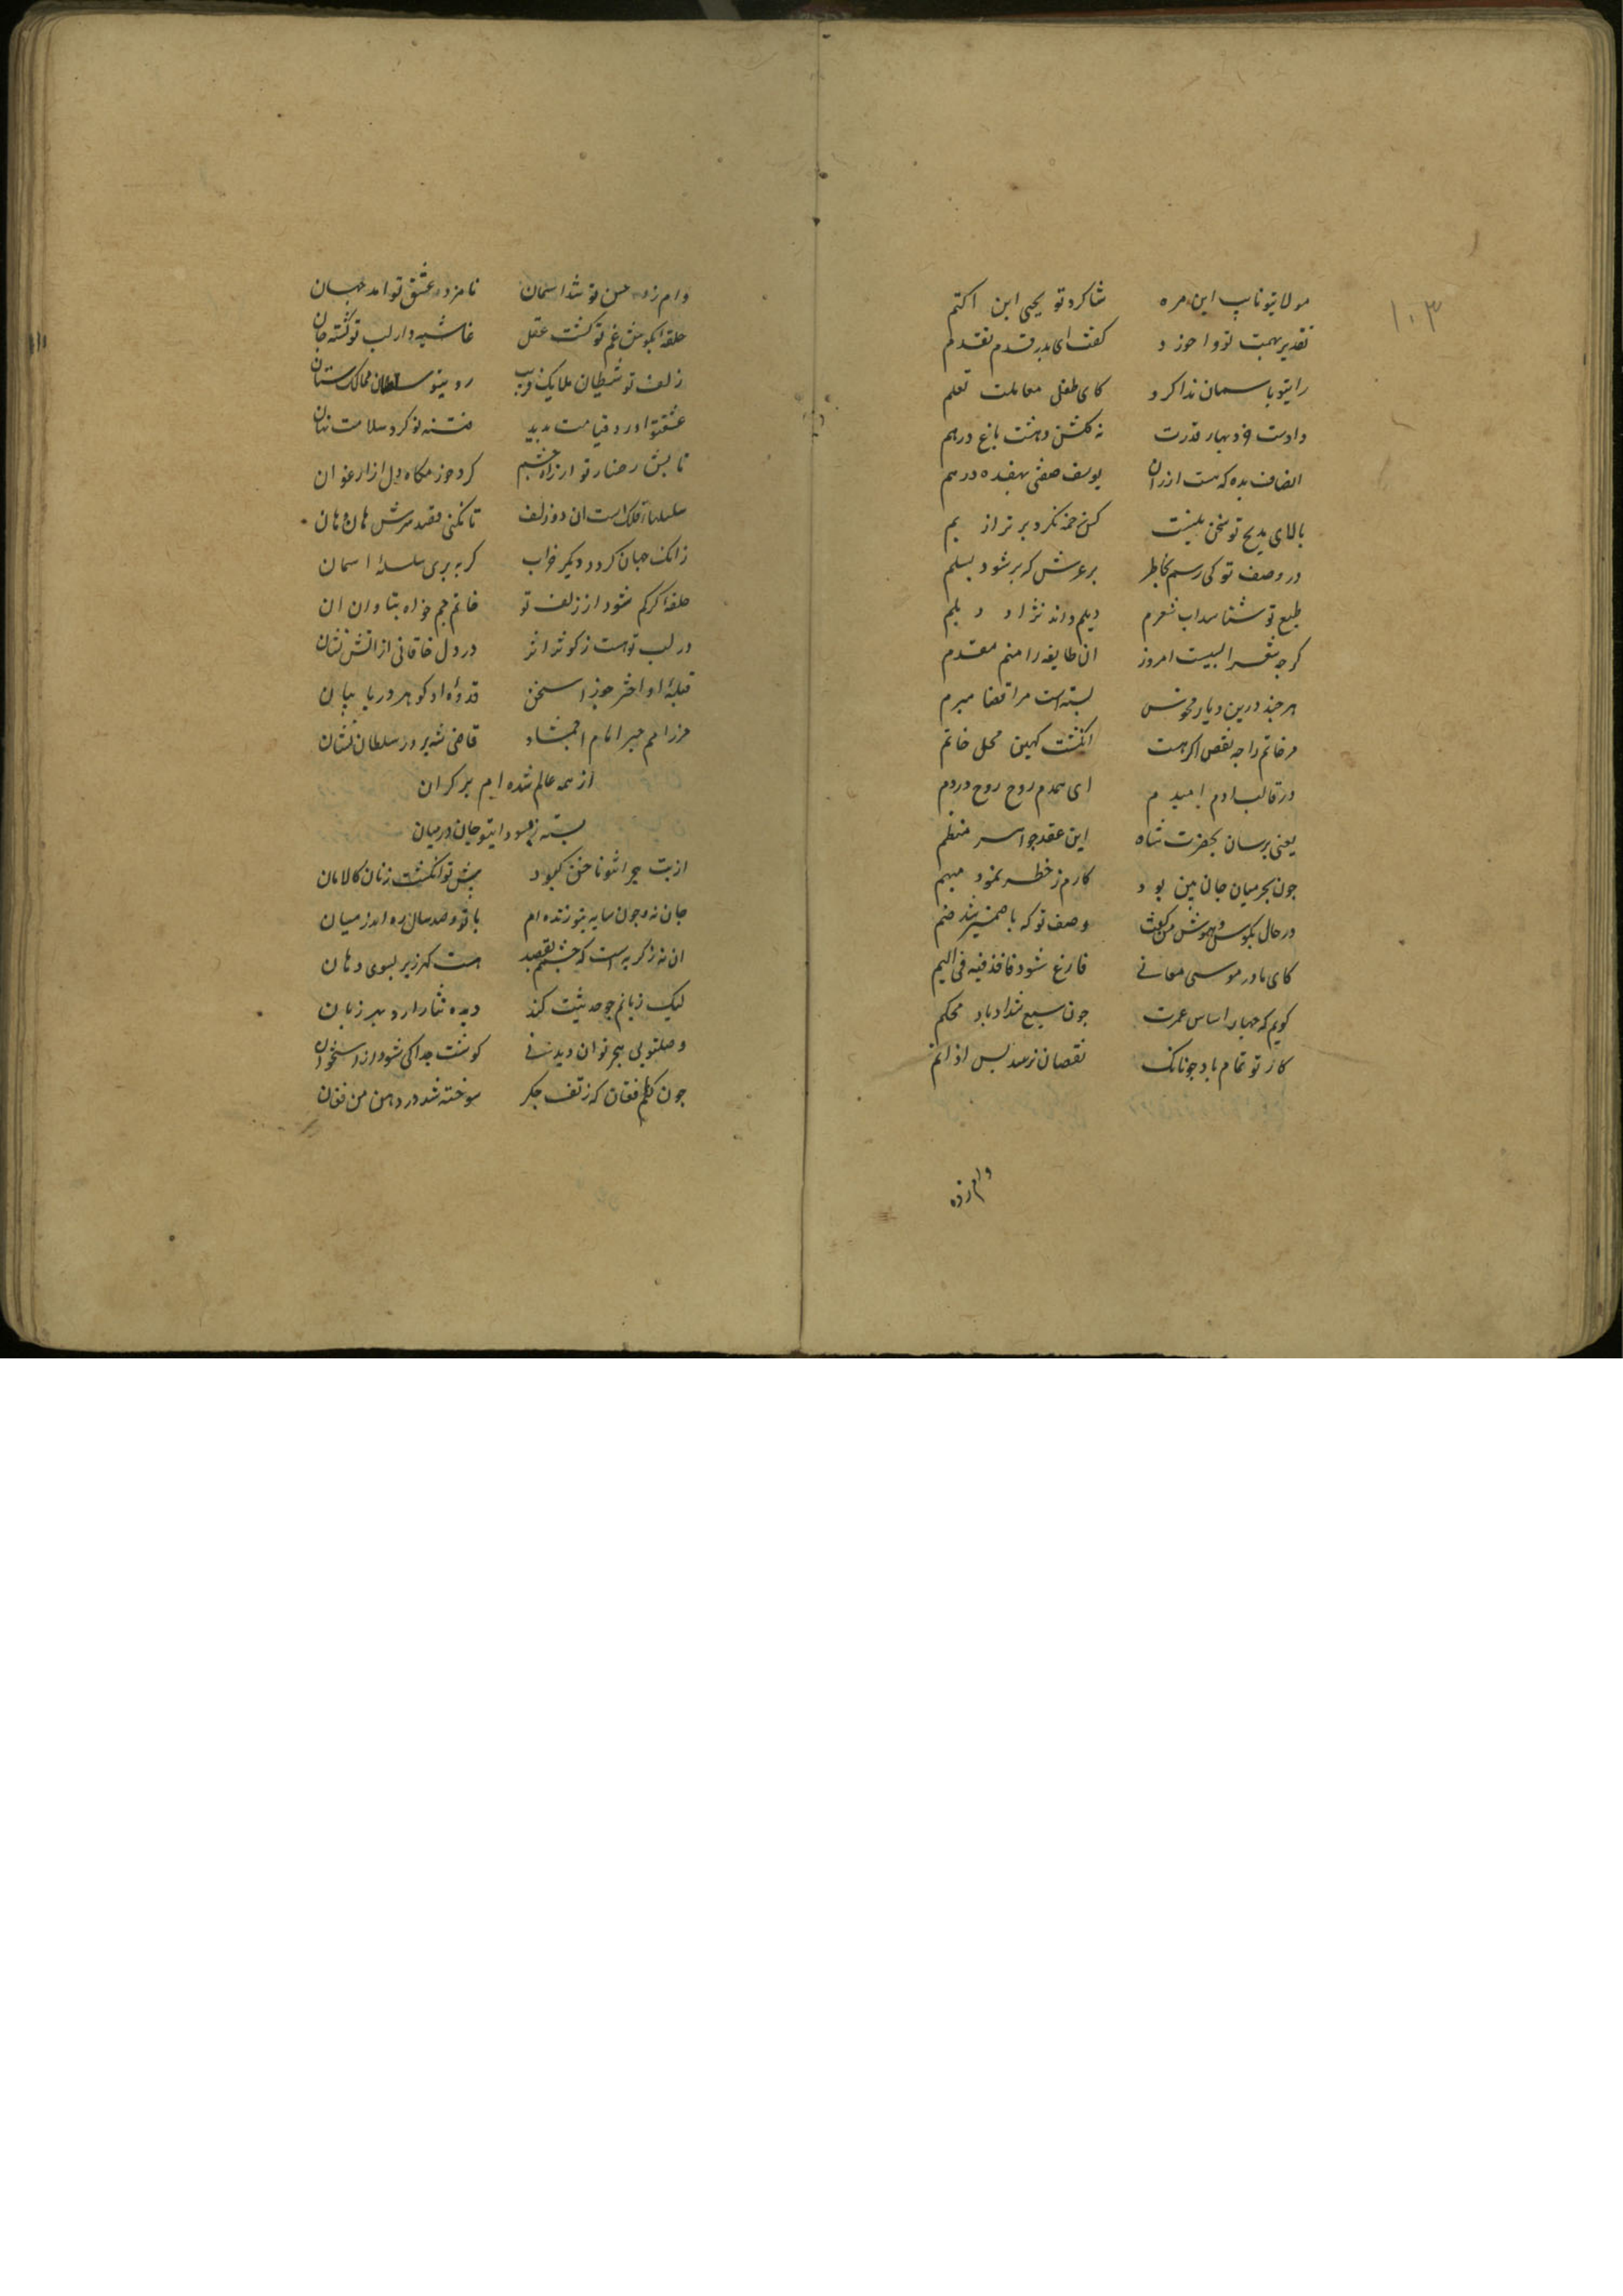 ۱۰۳
مولای تو نایب این مره شاکرد تو یحیی این اکثم
تقدیر بهمت تو وا خورد کفت ای بدر قدم تقدم
رای تو باسمان ندا کرد کای طفل معاملت تعلم
دادست فر و بهار قدرت نه کلشن و هشت باغ درهم
انصاف بده که هست ارزان یوسف صفتی بهفده درهم
بالای مدیح تو سخن نیست کس زخمه نکرد برتر از بم
در وصف تو کی رسم بخاطر بر عرش که بر شود بسلم
طبع تو شناسد اب شعرم دیلم داند نژاد دیلم
کرچه شعرا بسیست امروز ان طایفه را منم مقدم
هر چند درین دیار منحوس بسته است مرا قضا مبرم
مر خاتم را چه نقص اکر هست انکشت کهین محل خاتم
در قالب ادم امیدم ای همدم روح روح در دم
یعنی برسان بحضرت شاه این عقد جواهر منظم
جون بحر میان جان من بود کارم ز خطر نمود مبهم
در حال بکوش هوش من کفت وصف تو که با ضمیر شد ضم
کای مادر موسی معانی فارغ شو و فاقذفیه فی الیم
کویم که جهان اساس عمرت جون سبع شداد باد محکم
کار تو تمام باد جونانک نقصان نرسد بس از اتم
وام زده
وام زده حسن تو شد اسمان نامزد عشق تو امد جهان
حلقه بکوش غم تو کشت عقل غاشیه دار لب تو کشته جان
زلف تو شیطان ملایک فریب روی تو سلطان ممالک ستان
عشق تو اورد قیامت بدید فتنه تو کرد سلامت نهان
تابش رخسار تو از راه چشم کرد جز مکاه دل از ارغوان
سلسلهاء فلک است ان دو زلف تا نکنی قصد سرش هان و هان
زانک جهان کردد دیکر خراب کر ببری سلسلهٔ اسمان
حلقه اکر کم شود از زلف تو خاتم جم خواه بتاوان ان
در لب تو هست ز کوثر اثر در دل خاقانی از اتش نشان
قبلهٔ او اختر جوزا سخن قدوهٔ او کوهر دریا بیان
فخر امم حبر امام احمشاد قاضی شه برور سلطان نشان
از همه عالم شده ایم بر کران
بسته ز بهر سودای تو جان در میان
از تب هجر انشو ناخن کبود بیش تو انکشت زنان کالامان
جان نه و جون سایه بتو زنده ام با تو و صد ساله ره اندر میان
ان نه ز کریه است که چشمم بقصد هست کهرریز بسوی دهان
لیک زبانم جو حدیثت کند دیده نثار ارد بهر زبان
وصل تو بی هجر توان دید نی کوشت جدا کی شود از استخوان
جون کنم افغان که ز تف جکر سوخته شد در دهن من فغان